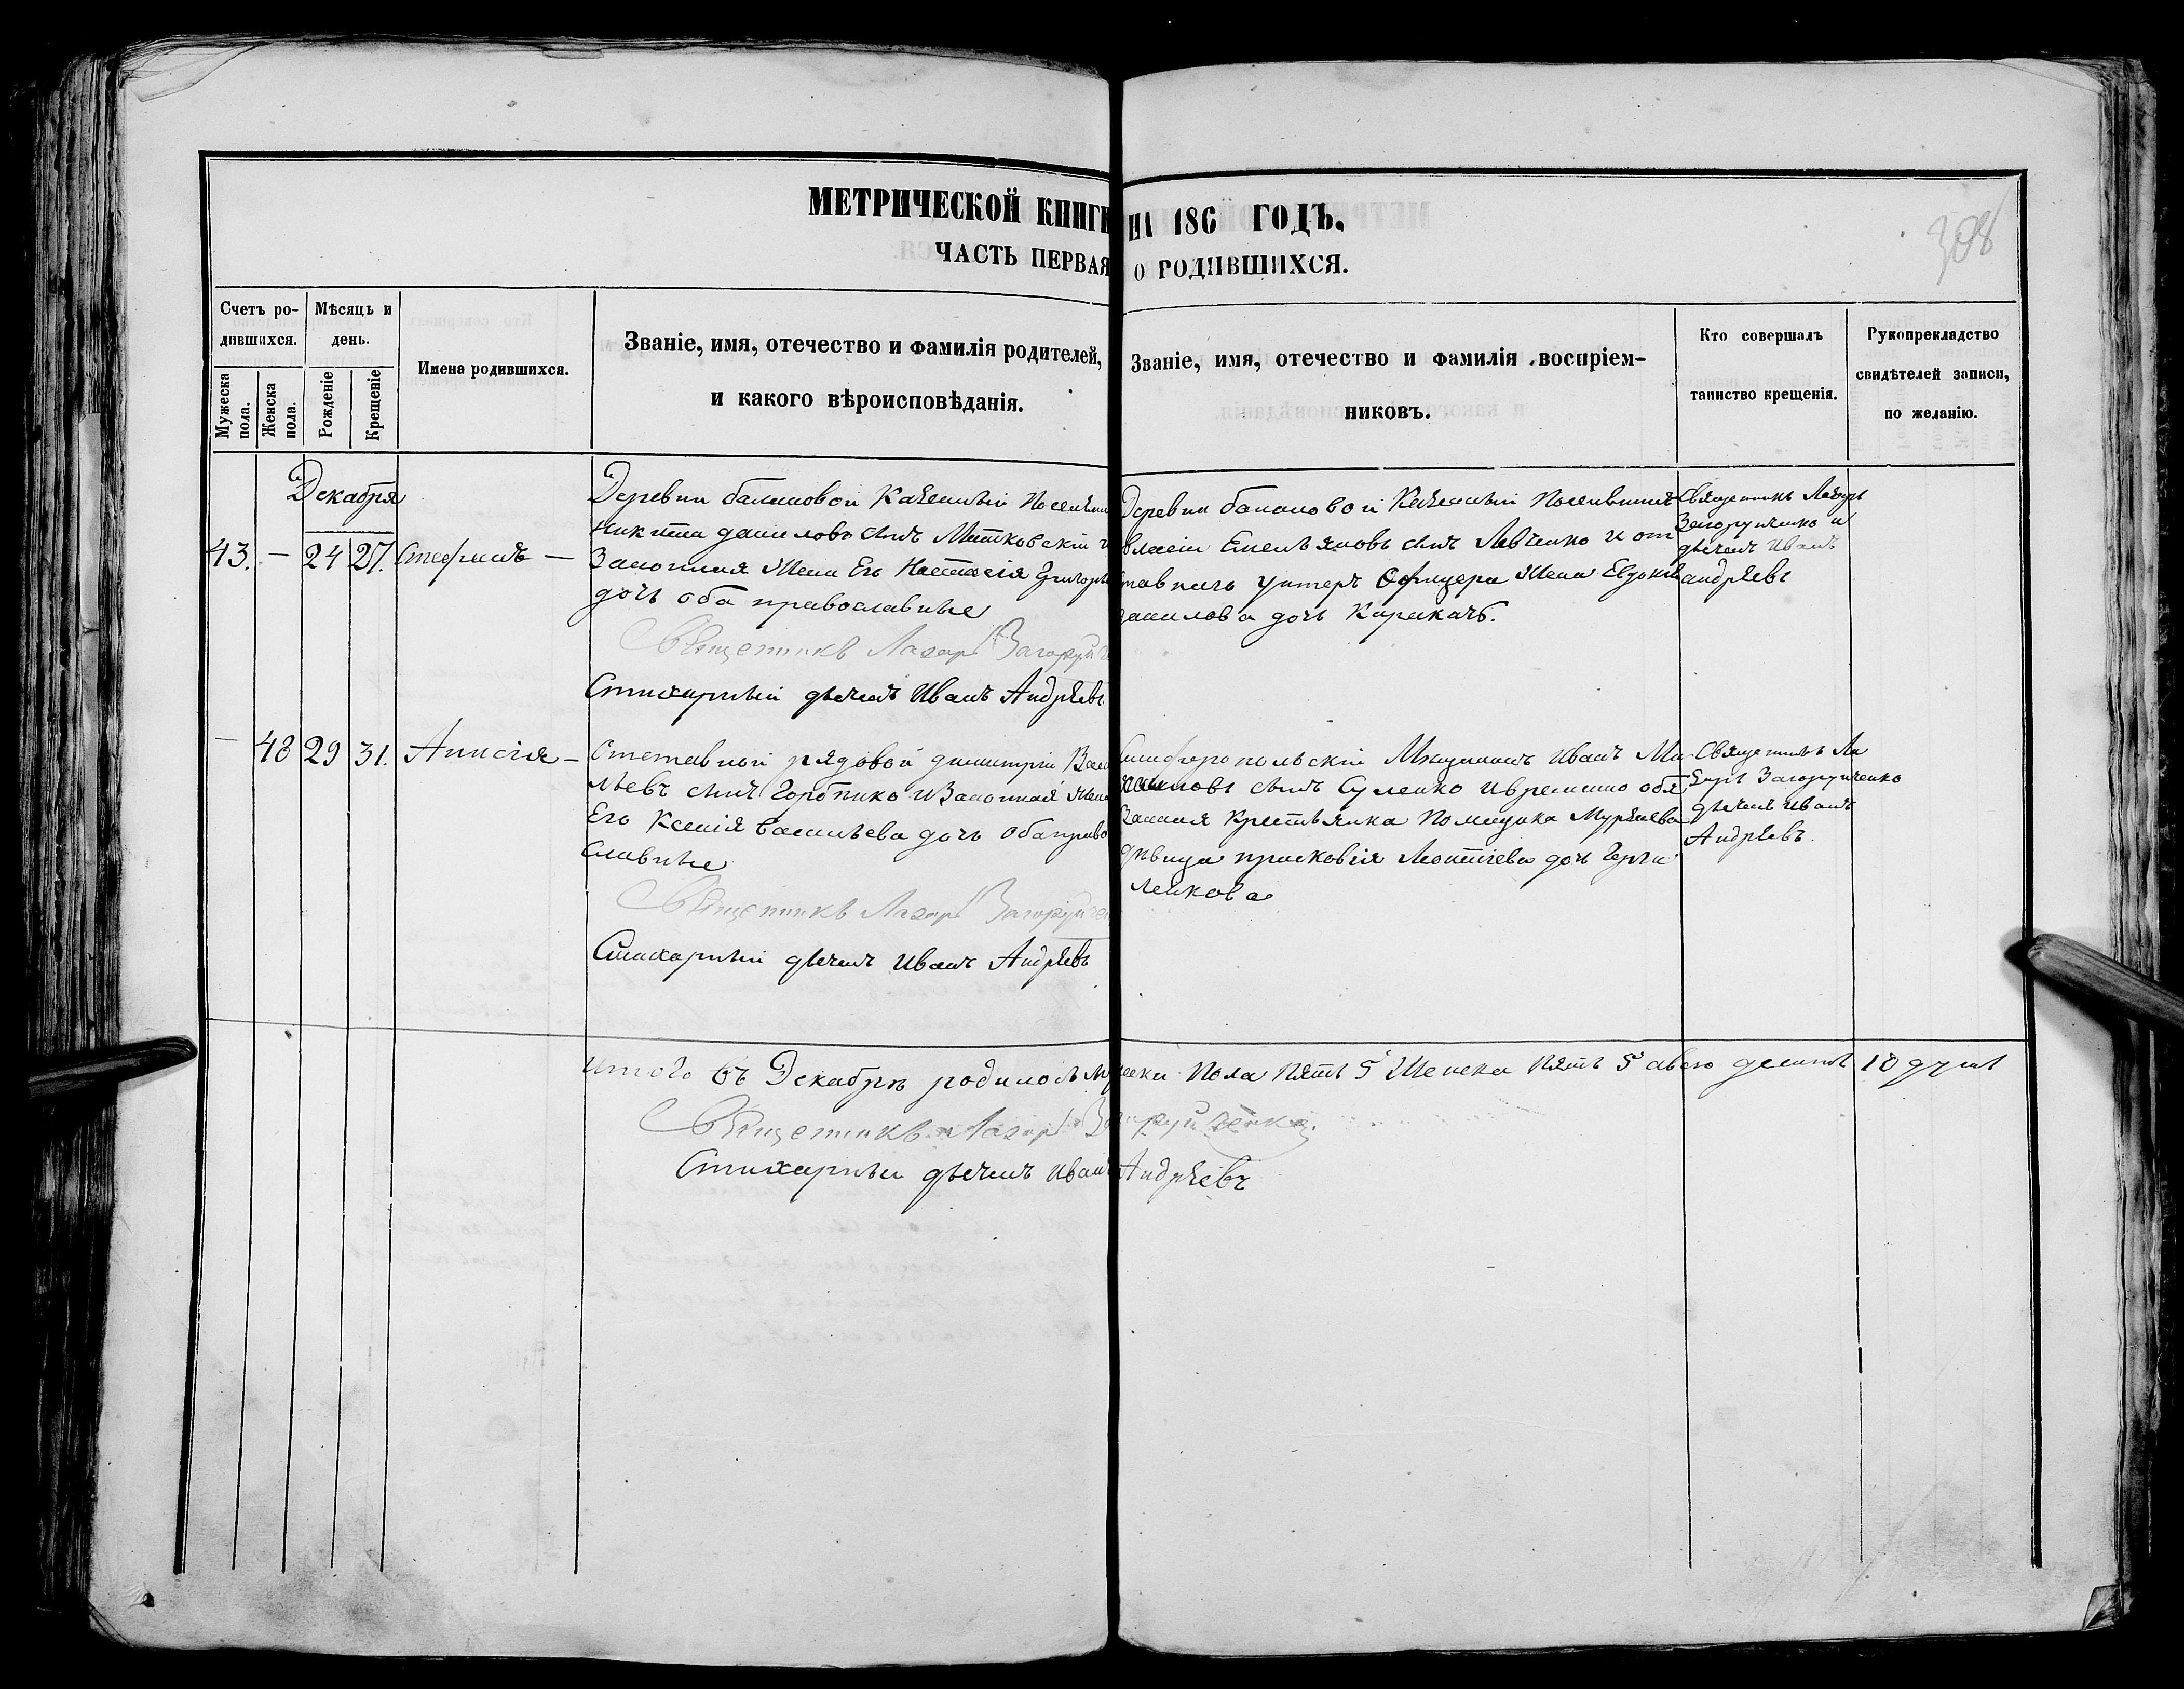 МЕТРИЧЕСКОЙ КНИГИ НА 186 ГОДЪ.
308
ЧАСТЬ ПЕРВАЯ О РОДИВШИХСЯ.
Счетъ ро-
дившихся.
Мужеска
пола.
Женска
пола.
Мѣсяцъ и
день.
Рожденіе
Крещеніе
Имена родившихся.
Званіе, имя, отечество и фамилія родителей,
и какого вѣроисповѣданія.
Званіе, имя, отечество и фамилія воспріем-
никовъ.
Кто совершалъ
таинство крещенія.
Рукоприкладство
свидѣтелей записи,
по желанію.
Декабря
43. — 24 27. Стефанъ —
Деревни Казенный
Никита даниловъ сынъ Митковскій и
Законная Жена Его Настасія
дочь оба православные
Священникъ Лазарь
Стихарный дьячекъ Иванъ Андрѣевъ
Деревни Казенный
власій Емельяновъ сынъ Левченко и от
ставнаго унтеръ Офицера Жена
данилова дочь Каракачъ.
Священникъ Лазарь
Загоруйченко и
дьячекъ Иванъ
андрѣевъ
— 48 29 31. Анисія —
Отставной рядовой димитрій Васи
льевъ сынъ и Законная Жена
Его Ксенія васильева дочь оба право
славные
Священникъ Лазарь
Стихарный дьячекъ Иванъ Андрѣевъ
Симферопольскій Мещанинъ Иванъ
сынъ Суленко и временно обя
занная Крестьянка Помещика
дѣвица прасковія Леонтіева дочь
ленкова
Священникъ Ла
зарь Загоруйченко
дьячекъ Иванъ
Андрѣевъ.
Итого въ Декабрѣ родилось Мужеска Пола Пять 5 Женска Пять 5 а всего десять 10 душъ
Священникъ Лазарь Загоруйченко.
Стихарный дьячекъ Иванъ Андрѣевъ